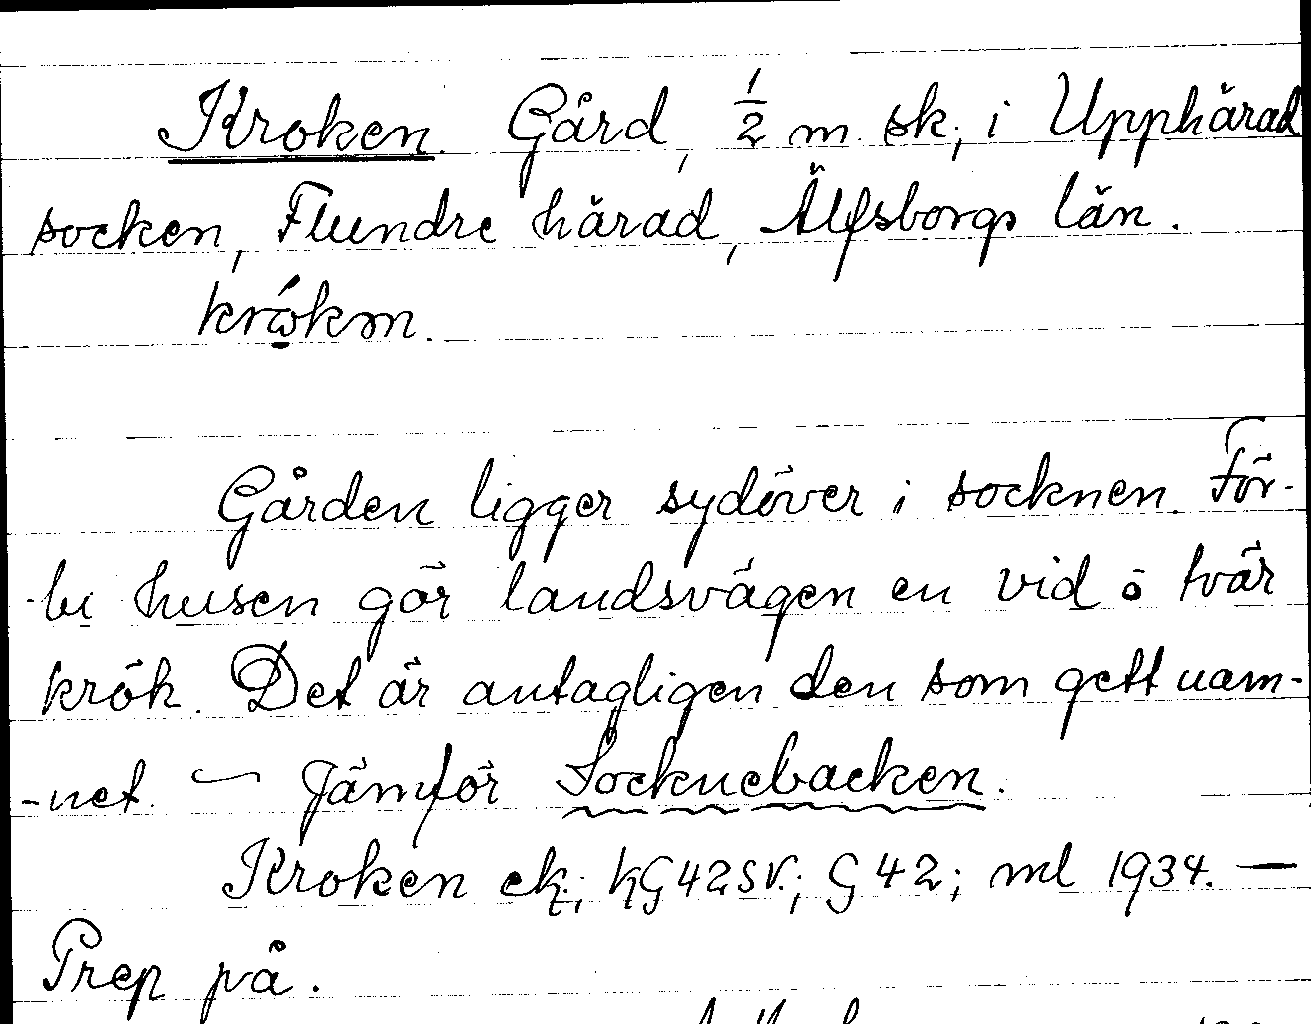 Kroken. Gård, ½ m. sk, i Upphärad
socken, Flundre härad, Älfsborgs län.
Gården ligger sydöver i socknen. För-
-bi husen gör landsvägen en vid o tvär
krök. Det är antagligen den som gett nam-
-net. — Jämför Socknebacken.
Kroken ek.; kG42SV.; G42; ml 1934. —
Prep på.